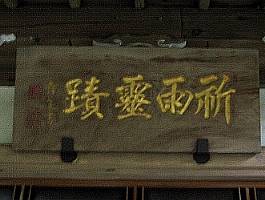 祈雨靈蹟